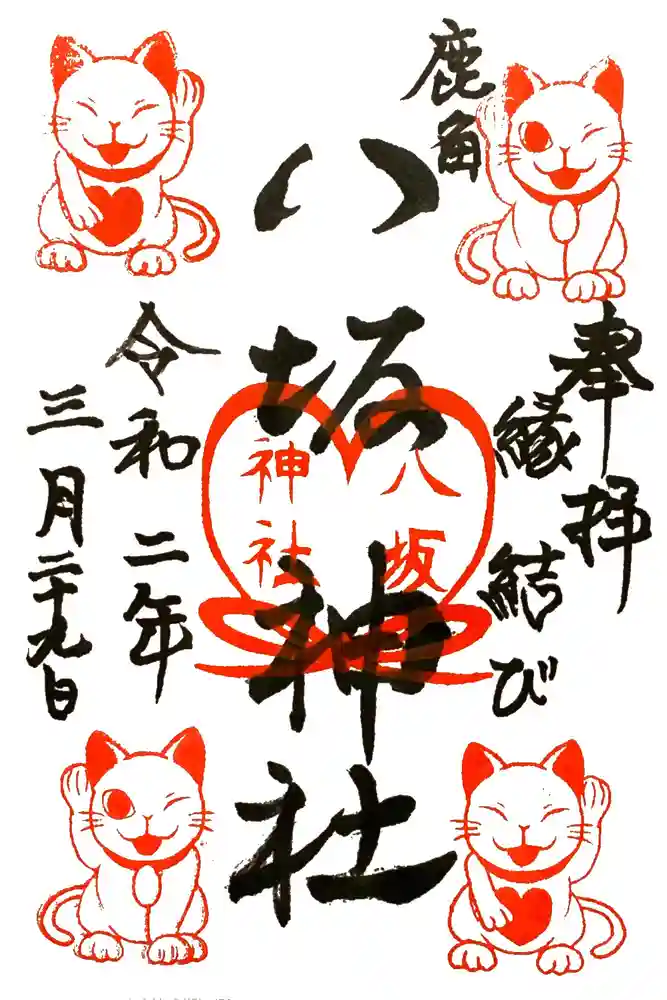 鹿角
奉拝
縁結び
八坂神社
八坂
神社
令和二年
三月二十九日